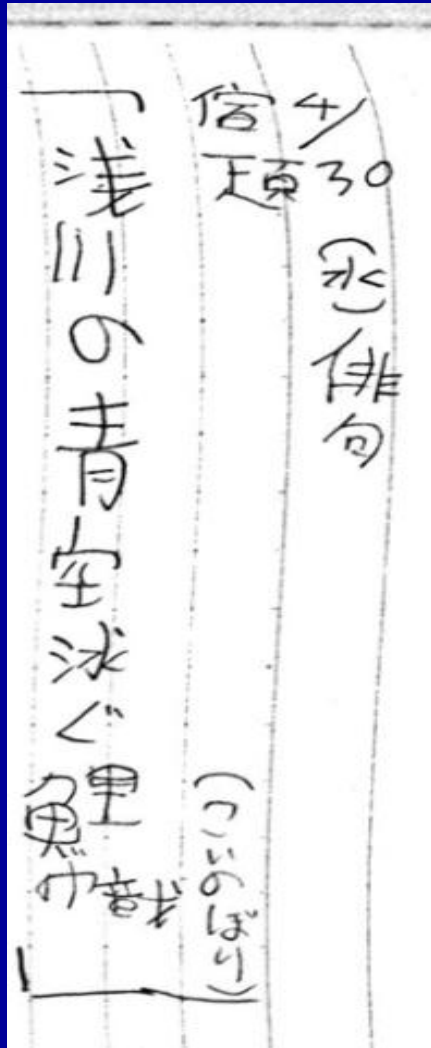 4/30 (水) 俳句
宿題
「浅川の青空泳ぐ鯉幟」
(こいのぼり)